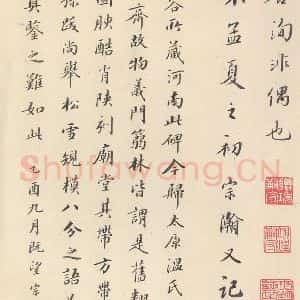 洵非偶也
孟夏之初宗瀚又記
谷所藏河南此碑今歸太康溫氏
齊故物義門蒻林皆謂是舊翻
國腴酷肖陝刻廟堂其帶方帶
孫跋尚舉松雪規模八分之語
其鑒之難如此 乙酉九月既望宗
Shufawang.CN